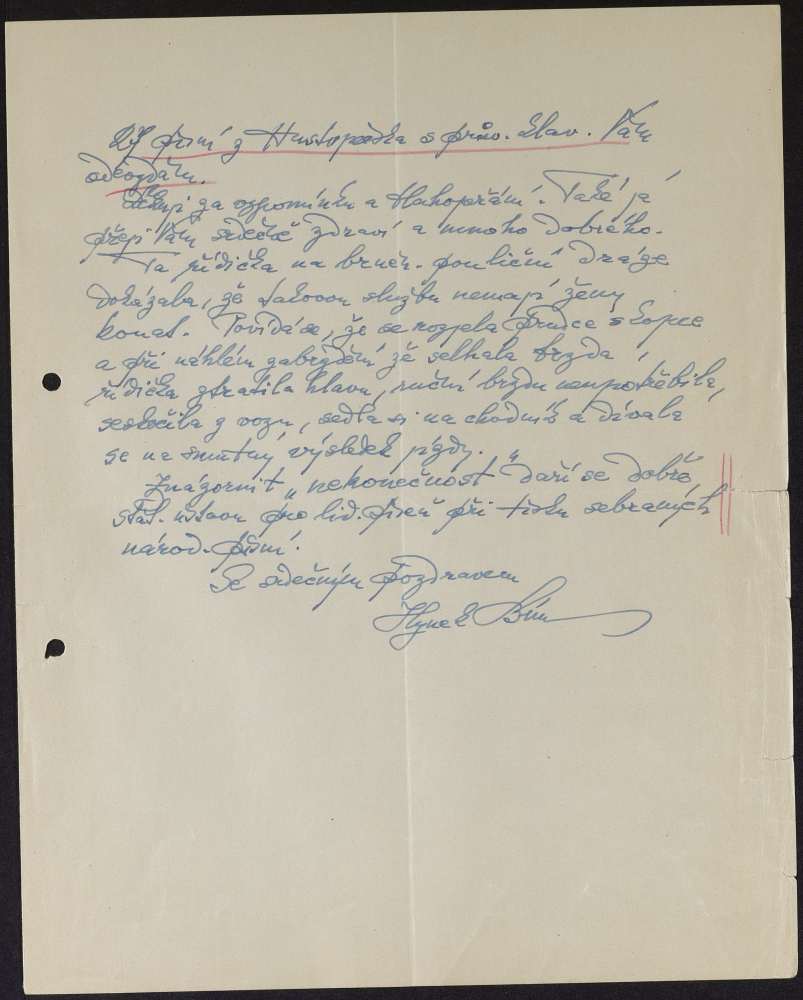 písní z Hustopečska s prův. klav. Vám
odevzdám.
Děkuji za vzpomínku a blahopřání. Také já
přeji Vám srdečně zdraví a mnoho dobrého.
Ta řidička na brněn. pouliční dráze
dokázala, že takovou službu nemají ženy
konat. Povídá se, že se rozjela prudce s kopce
a při náhlém zabrzdění že selhala brzda,
řidička ztratila hlavu, ruční brzdu neupotřebila,
seskočila z vozu, sedla si na chodník a dívala
se na smutný výsledek jízdy.
Znázornit „nekonečnost" daří se dobře
stát. ústavu pro lid. píseň při tisku sebraných
národ. písní.
Se srdečným pozdravem
Hynek Bím